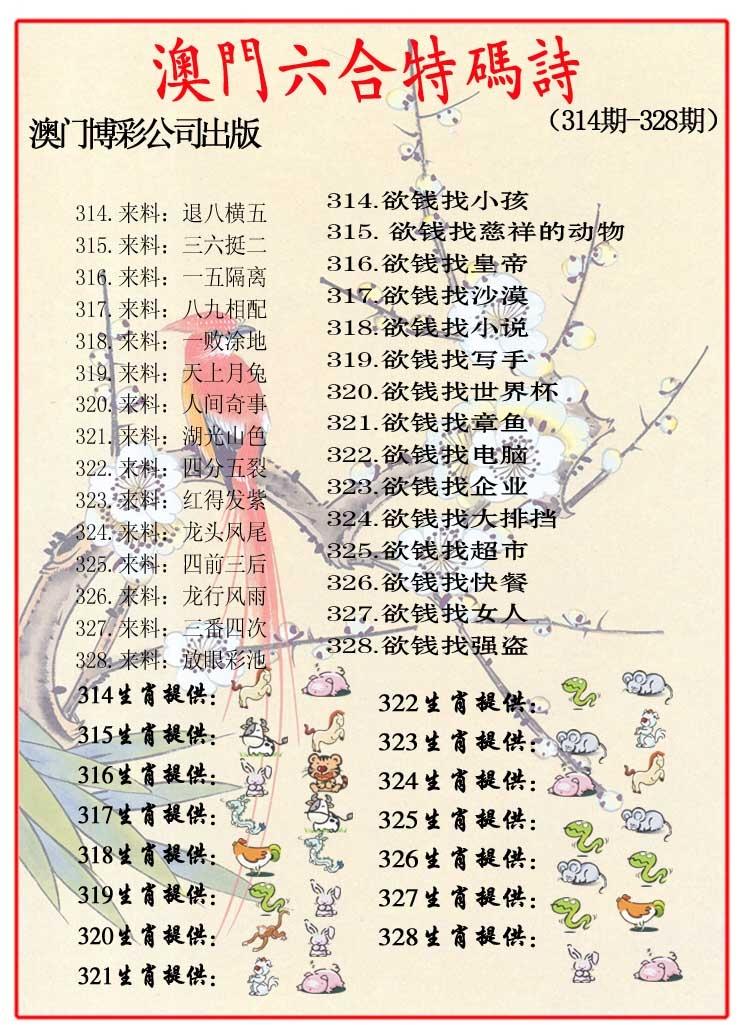 澳門六合特碼詩
澳门博彩公司出版
（314期-328期）
314.来料：退八横五
315.来料：三六挺二
316.来料：一五隔离
317.来料：八九相配
318.来料：一败涂地
319.来料：天上月兔
320.来料：人间奇事
321.来料：湖光山色
322.来料：四分五裂
323.来料：红得发紫
324.来料：龙头风尾
325.来料：四前三后
326.来料：龙行风雨
327.来料：三番四次
328.来料：放眼彩池
314.欲钱找小孩
315.欲钱找慈祥的动物
316.欲钱找皇帝
317.欲钱找沙漠
318.欲钱找小说
319.欲钱找写手
320.欲钱找世界杯
321.欲钱找章鱼
322.欲钱找电脑
323.欲钱找企业
324.欲钱找大排挡
325.欲钱找超市
326.欲钱找快餐
327.欲钱找女人
328.欲钱找强盗
314生肖提供：
315生肖提供：
316生肖提供：
317生肖提供：
318生肖提供：
319生肖提供：
320生肖提供：
321生肖提供：
322生肖提供：
323生肖提供：
324生肖提供：
325生肖提供：
326生肖提供：
327生肖提供：
328生肖提供：